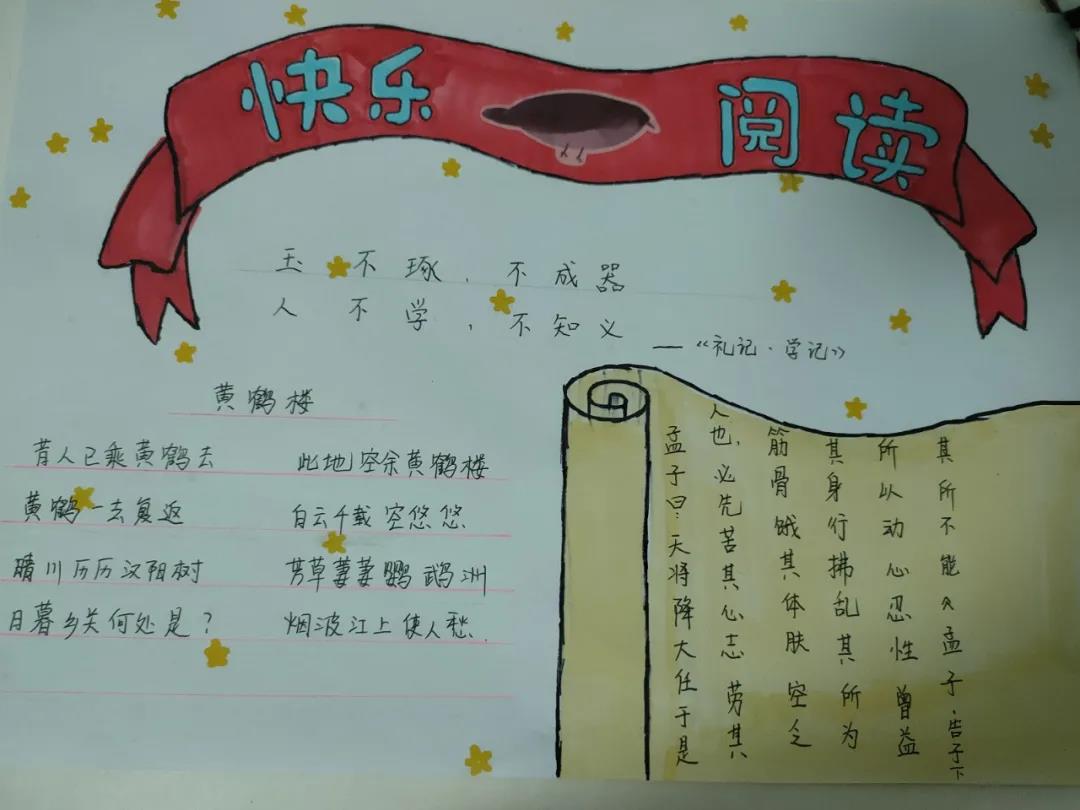 快乐 阅读
玉不琢，不成器
人不学，不知义
—《礼记·学记》
黄鹤楼
昔人已乘黄鹤去 此地空余黄鹤楼
黄鹤一去复返 白云千载空悠悠
晴川历历汉阳树 芳草萋萋鹦鹉洲
日暮乡关何处是？ 烟波江上使人愁.
孟子曰：天将降大任于是
人也，必先苦其心志劳其
筋骨饿其体肤空乏
其身行拂乱其所为
所以动心忍性曾益
其所不能《孟子·告子下